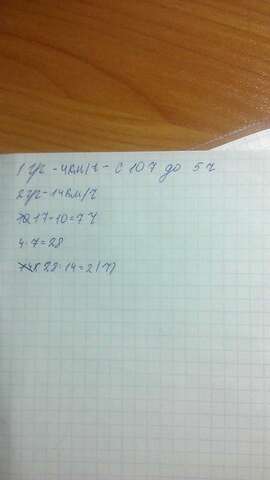 1 гр - 4км/ч - с 10 ч до 5 ч
2 гр - 14км/ч
17-10=7 ч
4·7=28
28:14=2(ч)